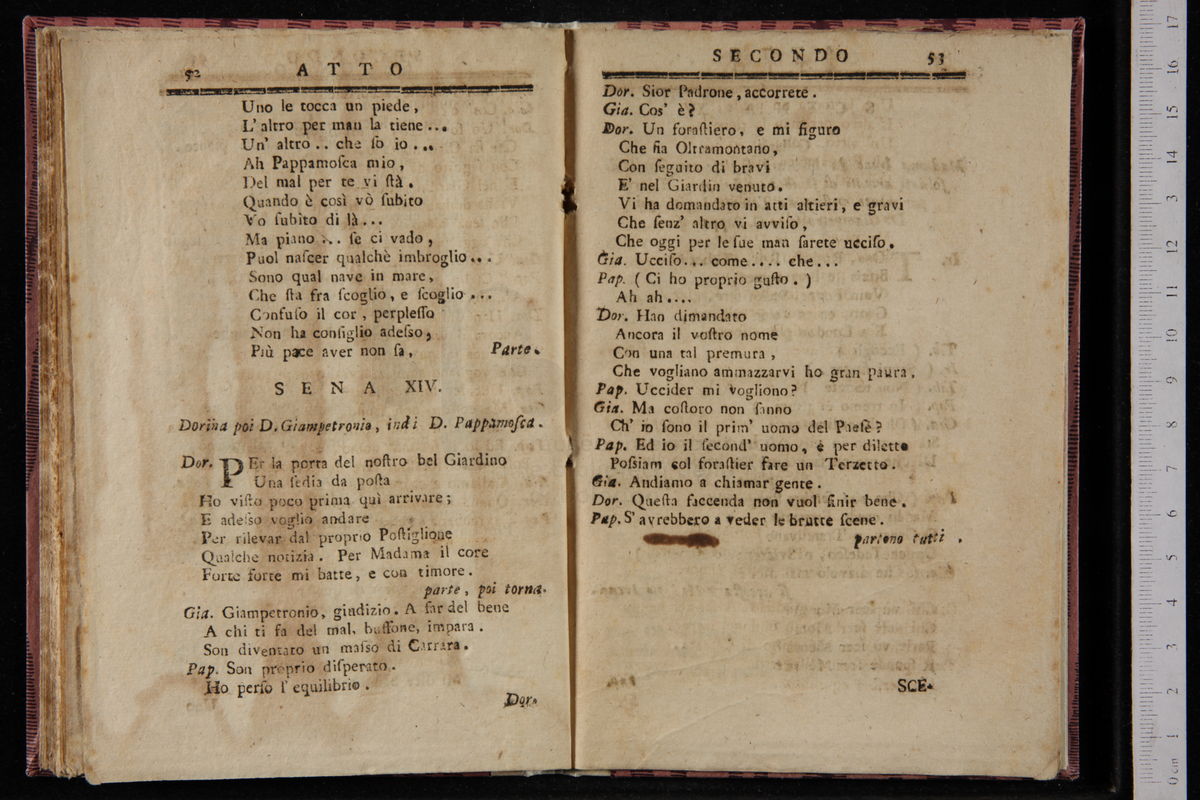 52 ATTO
Uno le tocca un piede,
L'altro per man la tiene...
Un' altro .. che ſo io ...
Ah Pappamoſca mio,
Del mal per te vi ſtà.
Quando è così vò ſubito
Vo ſubito di là...
Ma piano ... ſe ci vado,
Puol naſcer qualchè imbroglio...
Sono qual nave in mare,
Che ſta fra ſcoglio, e ſcoglio...
Confuſo il cor, perpleſſo
Non ha conſiglio adeſso,
Più pace aver non ſa, Parte.
SENA XIV.
Dorina poi D. Giampetronio, indi D. Pappamoſca.
Dor. PEr la porta del noſtro bel Giardino
Una ſedia da poſta
Ho viſto poco prima quì arrivare;
E adeſso voglio andare
Per rilevar dal proprio Poſtiglione
Qualche notizia. Per Madama il core
Forte forte mi batte, e con timore.
parte, poi torna.
Gia. Giampetronio, giudizio. A far del bene
A chi ti fa del mal, buffone, impara.
Son diventato un maſso di Carrara.
Pap. Son proprio diſperato.
Ho perſo l'equilibrio.
Dor.
SECONDO 53
Dor. Sior Padrone, accorrete.
Gia. Cos' è?
Dor. Un foraſtiero, e mi figuro
Che ſia Oltramontano,
Con ſeguito di bravi
E' nel Giardin venuto.
Vi ha domandato in atti altieri, e gravi
Che ſenz' altro vi avviſo,
Che oggi per le ſue man ſarete ucciſo.
Gia. Ucciſo... come.... che...
Pap. (Ci ho proprio guſto.)
Ah ah....
Dor. Han dimandato
Ancora il voſtro nome
Con una tal premura,
Che vogliano ammazzarvi ho gran paura.
Pap. Uccider mi vogliono?
Gia. Ma coſtoro non ſanno
Ch' io ſono il prim' uomo del Paeſè?
Pap. Ed io il ſecond' uomo, è per diletto
Poſsiam col foraſtier fare un Terzetto.
Gia. Andiamo a chiamar gente.
Dor. Queſta faccenda non vuol finir bene.
Pap. S'avrebbero a veder le brutte ſcene.
partono tutti.
SCE-
0 cm 1 2 3 4 5 6 7 8 9 10 11 12 13 14 15 16 17